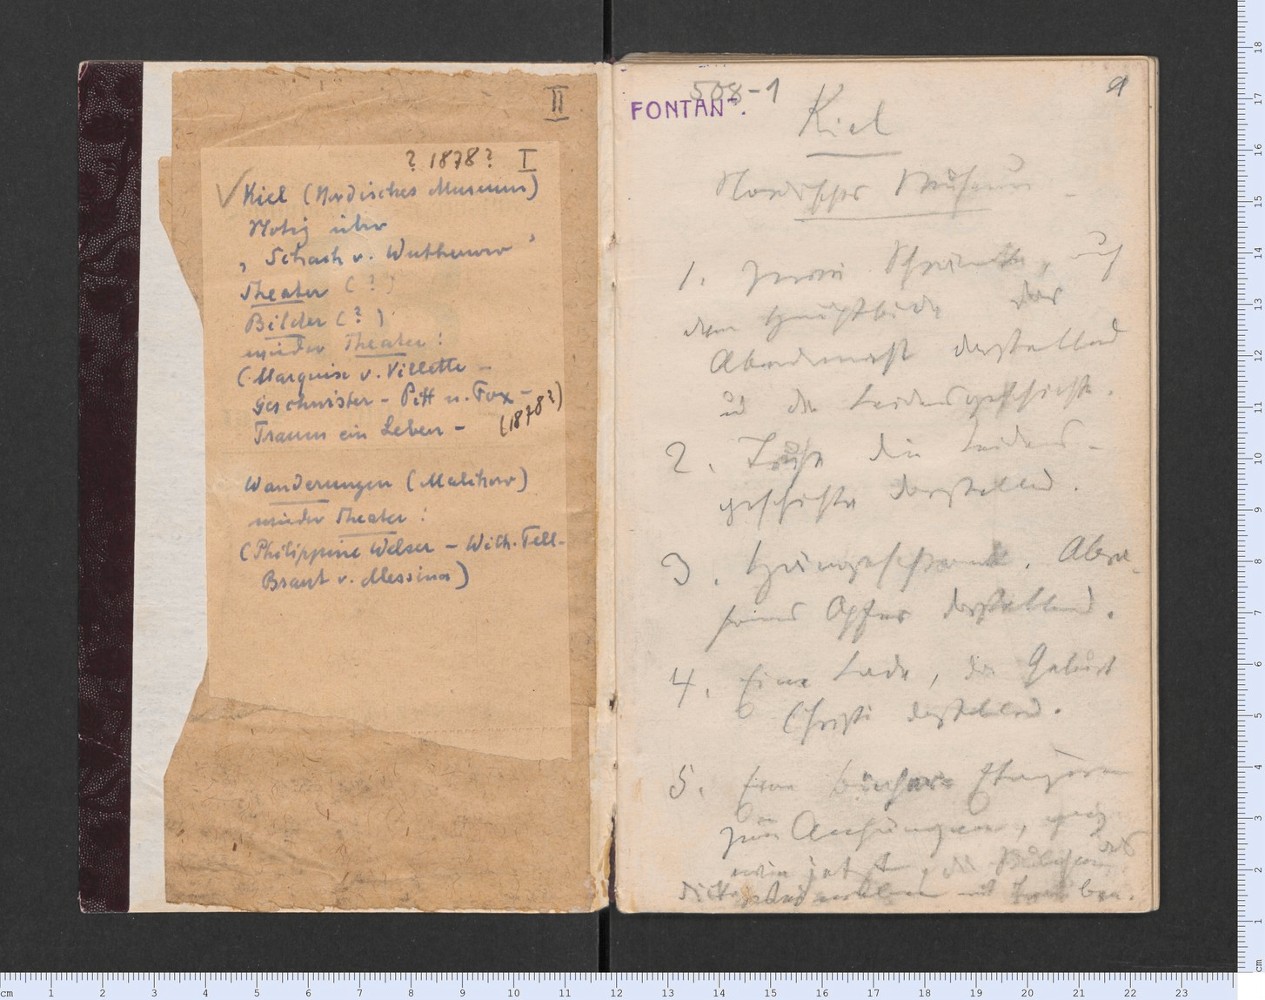 II
? 1878? I
Kiel (Nordisches Museum)
Notiz über
„Schach v. Wuthenow"
Theater (?)
Bilder (?)
wieder Theater:
(Marquise v. Villette –
Geschwister – Pitt u. Fox –
(1878?)
Traum ein Leben –
Wanderungen (Malchow)
wieder Theater:
(Philippine Welser – Wilh. Tell –
Braut v. Messina)
508-1
FONTAN
Kiel
Nordisches Museum
1. Zwei Schränke, auf
dem Hauptbilde das
Abendmahl darstellend
und die Leidensgeschichte.
2. Truhe die Leidens-
geschichte darstellend.
3. Hängeschrank. Abra-
hams Opfer darstellend.
4. Eine Lade, die Geburt
Christi darstellend.
5. Eine Etagere
zum
wie jetzt, die